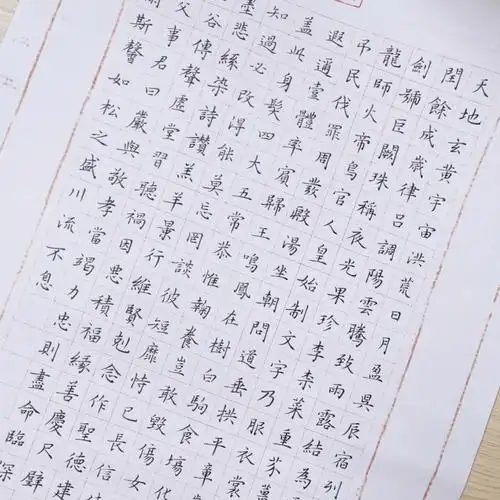 天地玄黃宇宙洪荒日月盈昃辰宿列
閏餘成歲律呂調陽雲騰致雨露結為
劍號巨闕珠稱夜光果珍李柰菜重芥
龍師火帝鳥官人皇始制文字乃服衣裳
弔民伐罪周發殷湯坐朝問道垂拱平章
遐邇壹體率賓歸王鳴鳳在樹白駒食場化
蓋此身髮四大五常恭惟鞠養豈敢毀傷女
知過必改得能莫忘罔談彼短靡恃己長信
墨悲絲染詩讚羔羊景行維賢剋念作聖德建
谷傳聲虛堂習聽禍因惡積福緣善慶尺璧
父事君曰嚴與敬孝當竭力忠則盡命臨深
斯馨如松之盛川流不息